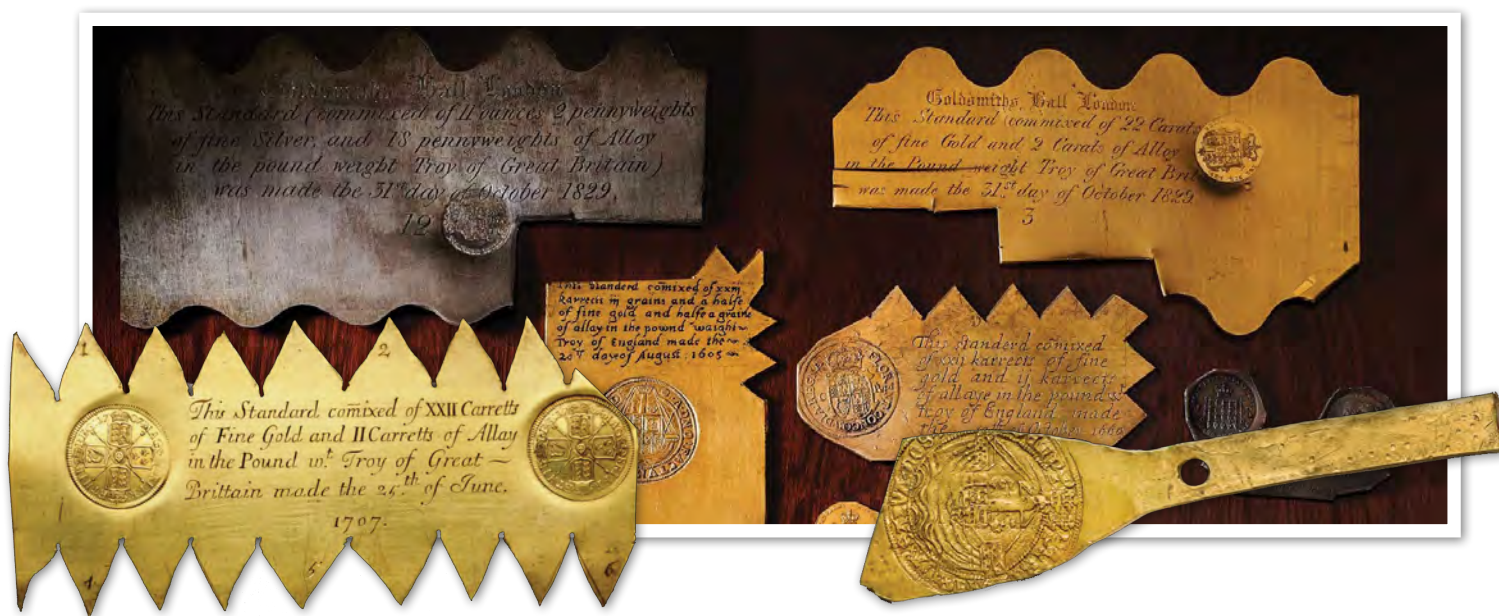 Goldsmiths Hall London
This Standard (commixed of 11 ounces 2 pennyweights
of fine Silver, and 18 pennyweights of Alloy
in the pound weight Troy of Great Britain)
was made the 31st day of October 1829.
12
Goldsmiths Hall London
This Standard (commixed of 22 Carats
of fine Gold and 2 Carats of Alloy
in the Pound weight Troy of Great Brit
was made the 31st day of October 1829
3
This standerd comixed of xxiij
karrects iij grains and a halfe
of fine gold and halfe a graine
of allay in the pound waight ~
Troy of England made the ~
day of August: 1605 ~
This standerd comixed
of xxij karrects of fine
gold and ij karrects
of allaye in the pound wt
Troy of England made
the October 1660
1
2
This Standard comixed of XXII Carretts
of Fine Gold and II Carretts of Allay
in the Pound wt. Troy of Great ~
Brittain made the 25th of June.
1707.
4
5
6